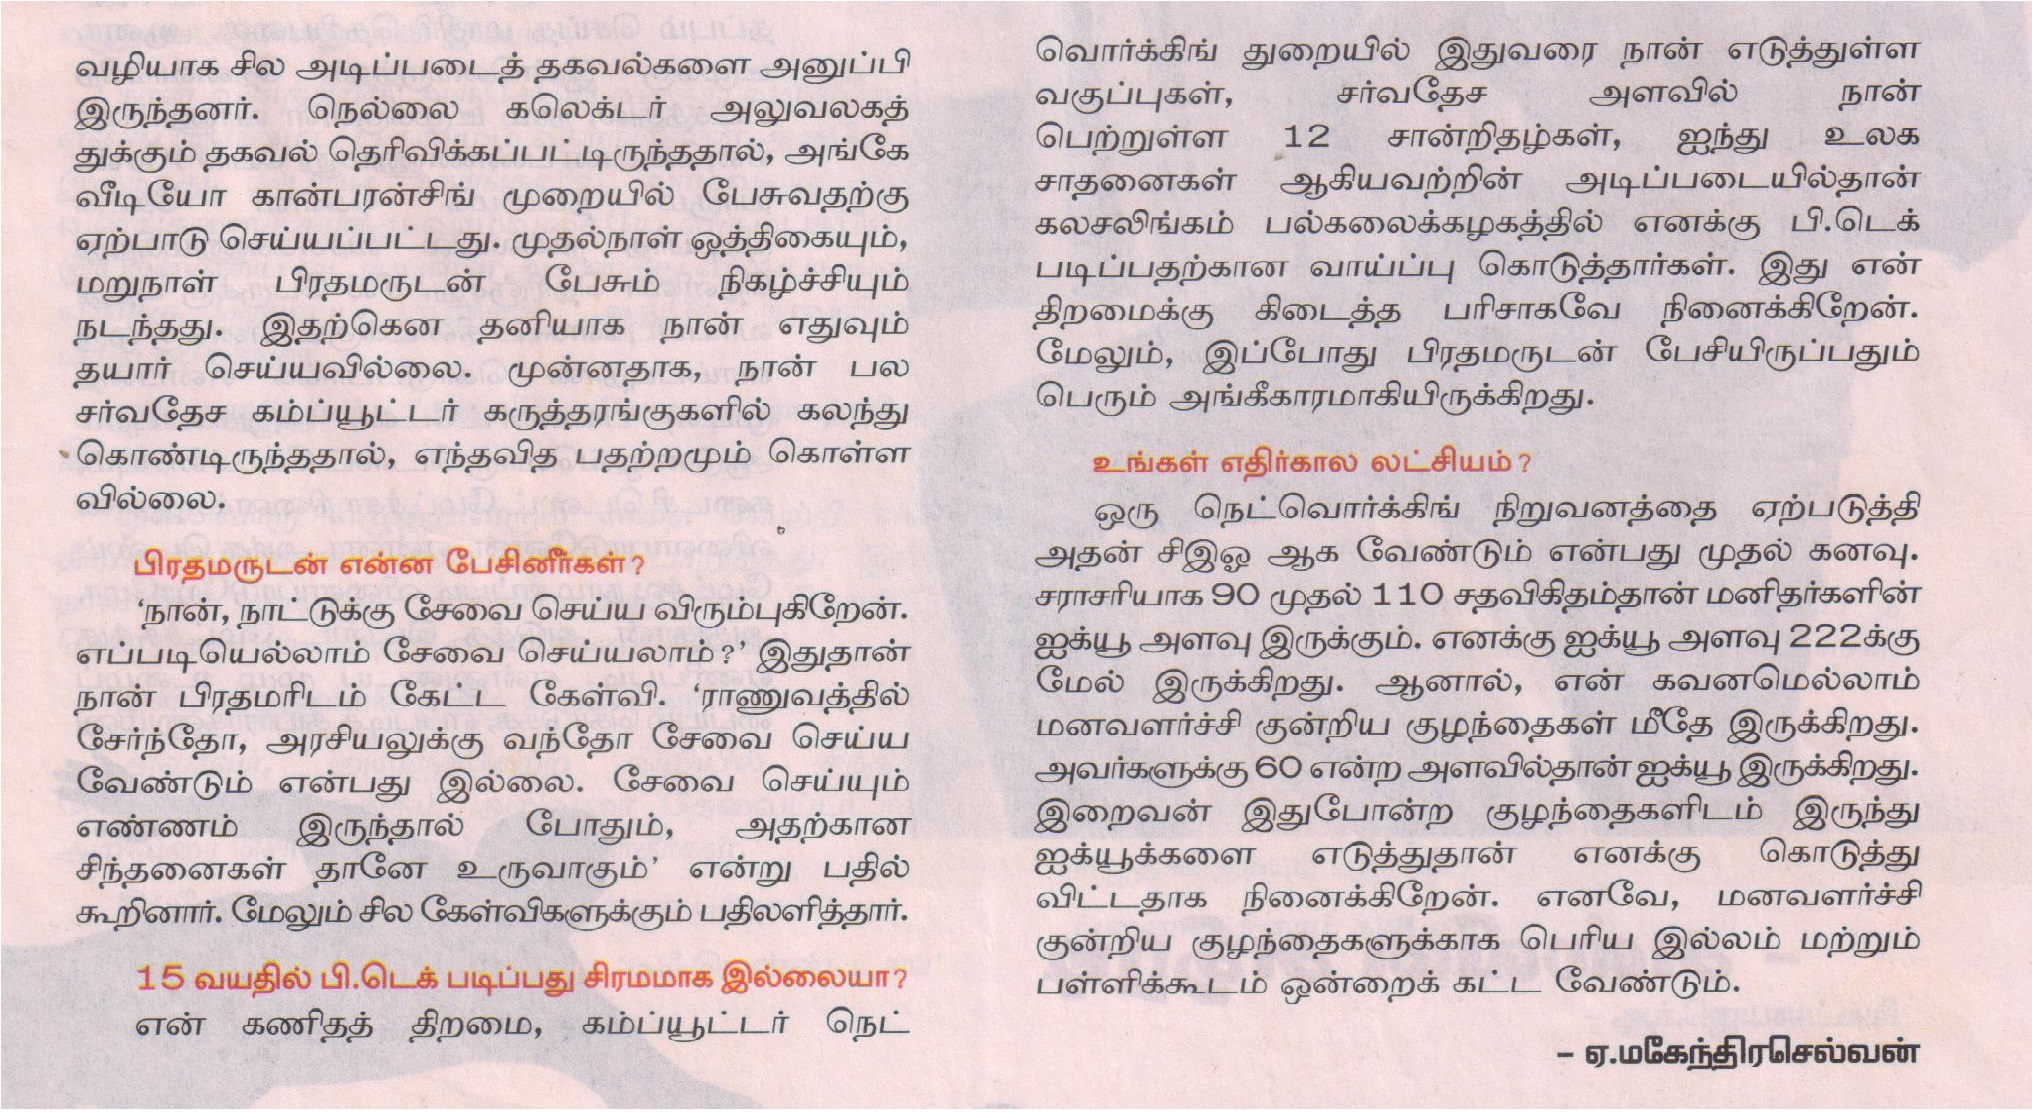 வழியாக சில அடிப்படைத் தகவல்களை அனுப்பி
இருந்தனர். நெல்லை கலெக்டர் அலுவலகத்
துக்கும் தகவல் தெரிவிக்கப்பட்டிருந்ததால், அங்கே
வீடியோ கான்பரன்சிங் முறையில் பேசுவதற்கு
ஏற்பாடு செய்யப்பட்டது. முதல்நாள் ஒத்திகையும்,
மறுநாள் பிரதமருடன் பேசும் நிகழ்ச்சியும்
நடந்தது. இதற்கென தனியாக நான் எதுவும்
தயார் செய்யவில்லை. முன்னதாக, நான் பல
சர்வதேச கம்ப்யூட்டர் கருத்தரங்குகளில் கலந்து
கொண்டிருந்ததால், எந்தவித பதற்றமும் கொள்ள
வில்லை.
பிரதமருடன் என்ன பேசினீர்கள்?
‘நான், நாட்டுக்கு சேவை செய்ய விரும்புகிறேன்.
எப்படியெல்லாம் சேவை செய்யலாம்?’ இதுதான்
நான் பிரதமரிடம் கேட்ட கேள்வி. ‘ராணுவத்தில்
சேர்ந்தோ, அரசியலுக்கு வந்தோ சேவை செய்ய
வேண்டும் என்பது இல்லை. சேவை செய்யும்
எண்ணம் இருந்தால் போதும், அதற்கான
சிந்தனைகள் தானே உருவாகும்’ என்று பதில்
கூறினார். மேலும் சில கேள்விகளுக்கும் பதிலளித்தார்.
15 வயதில் பி.டெக் படிப்பது சிரமமாக இல்லையா?
என் கணிதத் திறமை, கம்ப்யூட்டர் நெட்
வொர்க்கிங் துறையில் இதுவரை நான் எடுத்துள்ள
வகுப்புகள், சர்வதேச அளவில் நான்
பெற்றுள்ள 12 சான்றிதழ்கள், ஐந்து உலக
சாதனைகள் ஆகியவற்றின் அடிப்படையில்தான்
கலசலிங்கம் பல்கலைக்கழகத்தில் எனக்கு பி.டெக்
படிப்பதற்கான வாய்ப்பு கொடுத்தார்கள். இது என்
திறமைக்கு கிடைத்த பரிசாகவே நினைக்கிறேன்.
மேலும், இப்போது பிரதமருடன் பேசியிருப்பதும்
பெரும் அங்கீகாரமாகியிருக்கிறது.
உங்கள் எதிர்கால லட்சியம்?
ஒரு நெட்வொர்க்கிங் நிறுவனத்தை ஏற்படுத்தி
அதன் சிஇஓ ஆக வேண்டும் என்பது முதல் கனவு.
சராசரியாக 90 முதல் 110 சதவிகிதம்தான் மனிதர்களின்
ஐக்யூ அளவு இருக்கும். எனக்கு ஐக்யூ அளவு 222க்கு
மேல் இருக்கிறது. ஆனால், என் கவனமெல்லாம்
மனவளர்ச்சி குன்றிய குழந்தைகள் மீதே இருக்கிறது.
அவர்களுக்கு 60 என்ற அளவில்தான் ஐக்யூ இருக்கிறது.
இறைவன் இதுபோன்ற குழந்தைகளிடம் இருந்து
ஐக்யூக்களை எடுத்துதான் எனக்கு கொடுத்து
விட்டதாக நினைக்கிறேன். எனவே, மனவளர்ச்சி
குன்றிய குழந்தைகளுக்காக பெரிய இல்லம் மற்றும்
பள்ளிக்கூடம் ஒன்றைக் கட்ட வேண்டும்.
– ஏ.மகேந்திரசெல்வன்